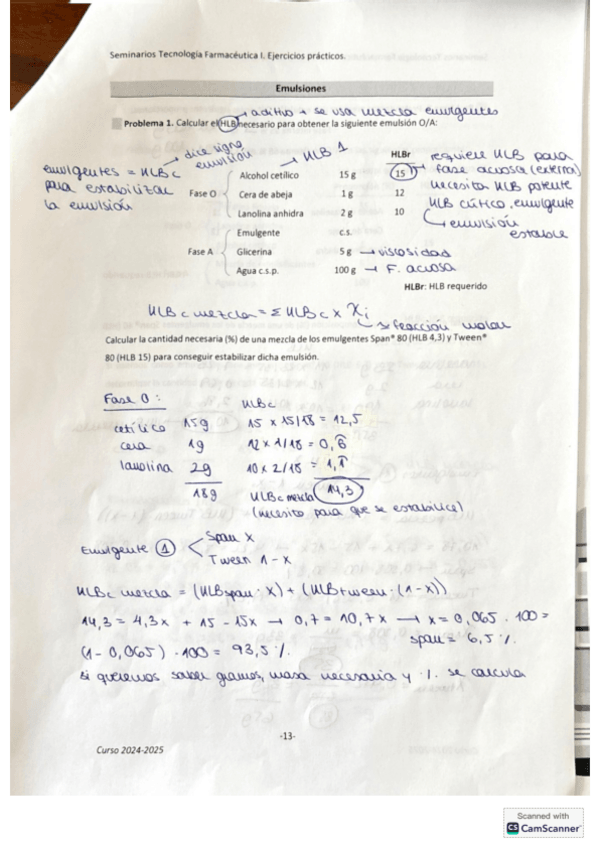 Seminarios Tecnología Farmacéutica I. Ejercicios prácticos.
Emulsiones
→ aditivo → se usa mezcla emulgentes
Problema 1. Calcular el HLB necesario para obtener la siguiente emulsión O/A:
→ dice signo emulsión
→ HLB 1
emulgentes = HLBc
para estabilizar
la emulsión
HLBr
Fase O
Alcohol cetílico 15 g 15
Cera de abeja 1 g 12
Lanolina anhidra 2 g 10
requiere HLB para
fase acuosa (externa)
necesita HLB potente
HLB crítico, emulgente
↳ emulsión
estable
Fase A
Emulgente c.s.
Glicerina 5 g → viscosidad
Agua c.s.p. 100 g → F. acuosa
HLBr: HLB requerido
HLBc mezcla = Σ HLBc x Xi
↳ fracción molar
Calcular la cantidad necesaria (%) de una mezcla de los emulgentes Span® 80 (HLB 4,3) y Tween®
80 (HLB 15) para conseguir estabilizar dicha emulsión.
Fase O: HLBc
cetílico 15g 15 x 15/18 = 12,5
cera 1g 12 x 1/18 = 0,6̂
lanolina 2g 10 x 2/18 = 1,1̂
18g HLBc mezcla 14,3
(necesito para que se estabilice)
Emulgente 1
Span x
Tween 1 - x
HLBc mezcla = (HLBspan · x) + (HLBtween · (1-x))
14,3 = 4,3x + 15 - 15x → 0,7 = 10,7x → x = 0,065 · 100 =
span = 6,5 %.
(1 - 0,065) · 100 = 93,5 %.
si queremos saber gramos, masa necesaria y %. se calcula
-13-
Curso 2024-2025
Scanned with
CS CamScanner